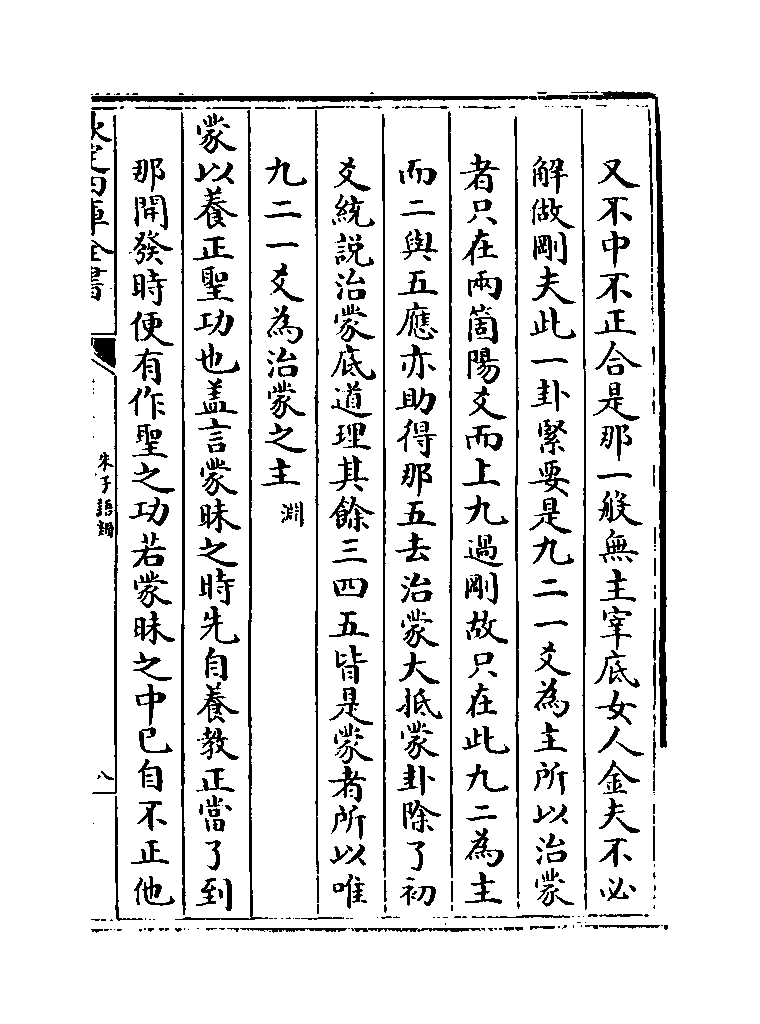 又不中不正合是那一般無主宰底女人金夫不必
解做剛夫此一卦緊要是九二一爻為主所以治蒙
者只在兩箇陽爻而上九過剛故只在此九二為主
而二與五應亦助得那五去治蒙大抵蒙卦除了初
爻統説治蒙底道理其餘三四五皆是蒙者所以唯
九二一爻為治蒙之主 淵
蒙以養正聖功也盖言蒙昧之時先自養教正當了到
那開發時便有作聖之功若蒙昧之中已自不正他
欽定四庫全書
朱子語類
八